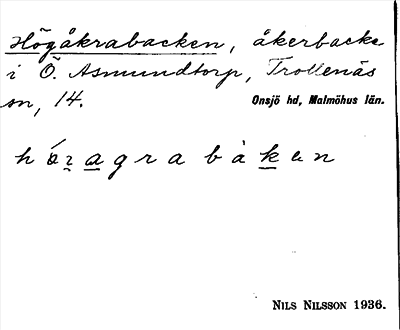 Högåkrabacken, åkerbacke
i Ö. Asmundtorp, Trollenäs
sn, 14. Onsjö hd, Malmöhus län.
h a g r a b à k e n
NILS NILSSON 1936.